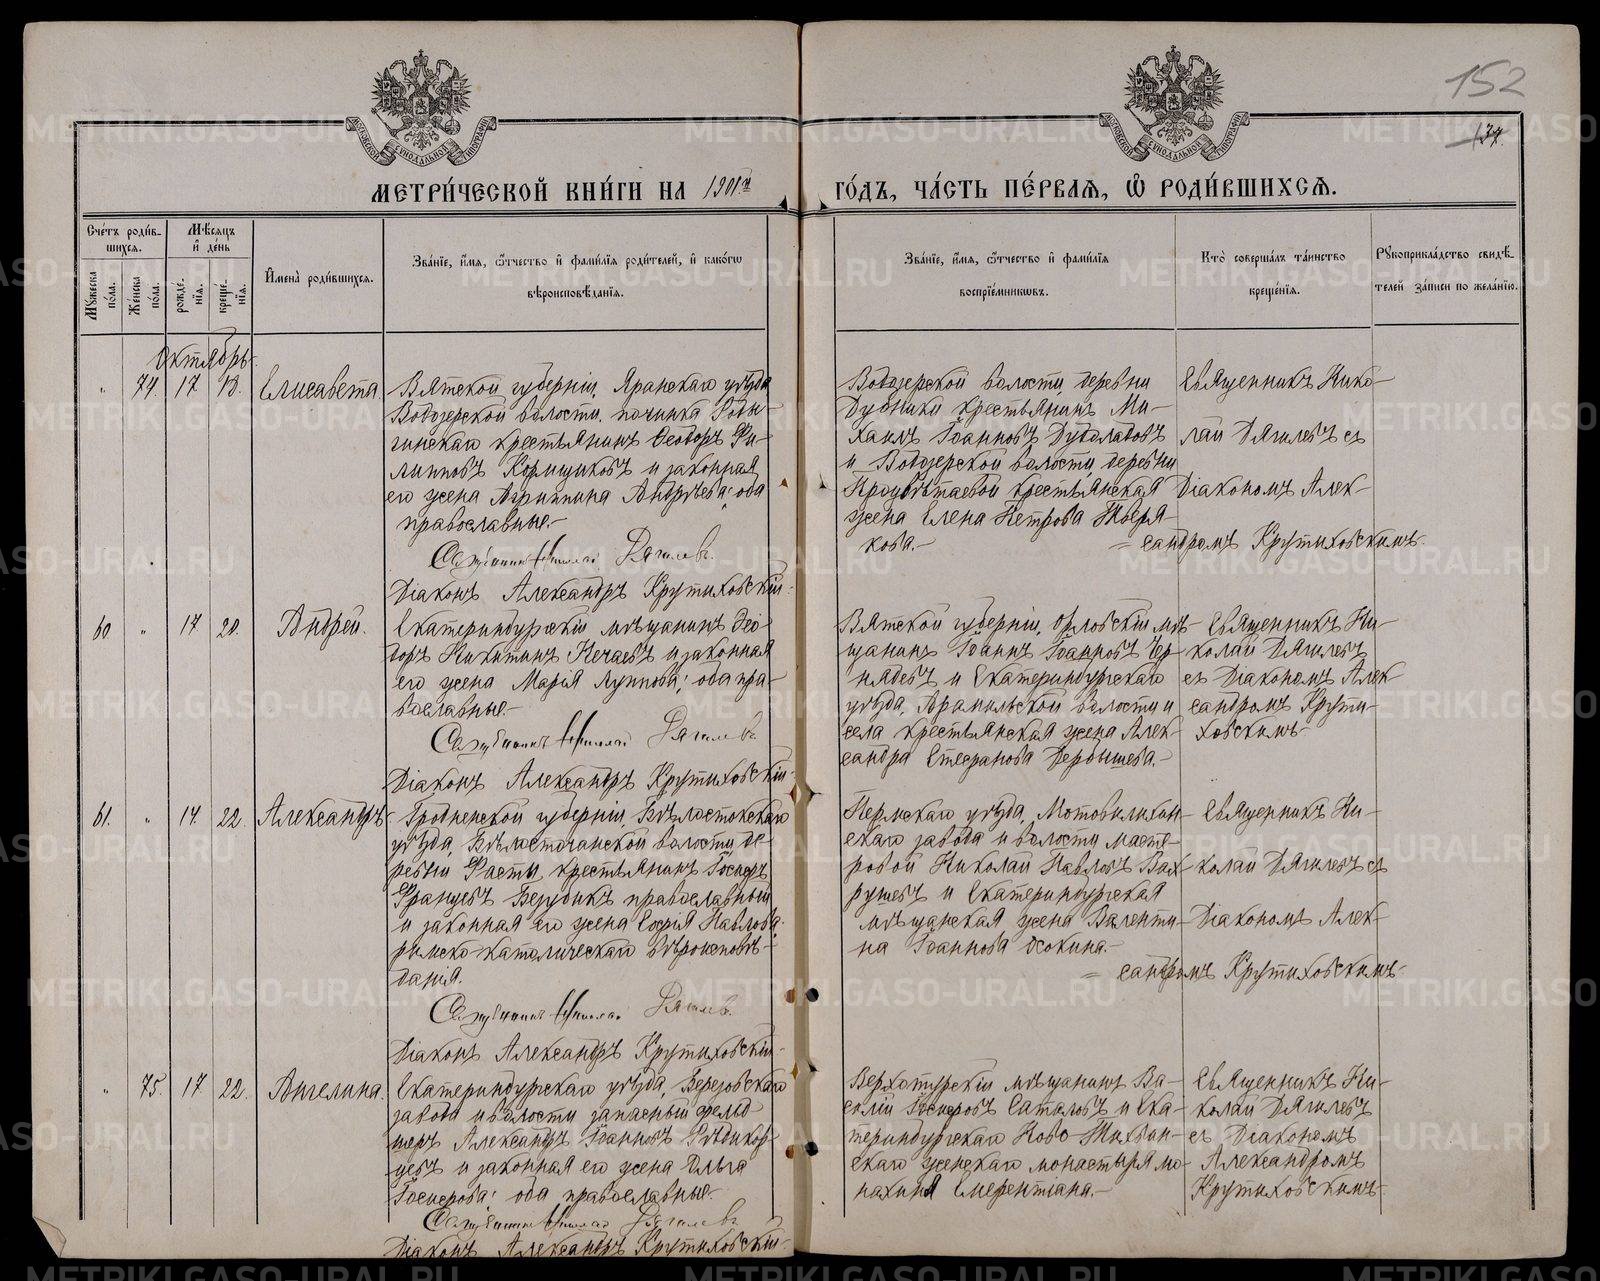 152
134.
МОСКОВСКОЙ СѴНОДАЛЬНОЙ ТИПОГРАФІИ
МОСКОВСКОЙ СѴНОДАЛЬНОЙ ТИПОГРАФІИ
МЕТРИ́ЧЕСКОЙ КНИ́ГИ НА 1901й
ГО́ДЪ, ЧА́СТЬ ПЕ́РВАЯ, Ѽ РОДИ́ВШИХСЯ.
Сче́тъ роди́в-
шихся.
Мѣ́сяцъ
и҆ де́нь
Мꙋ́жеска по́ла.
Же́нска по́ла.
рожде́-нїя.
креще́-нїя.
И҆мена̀ роди́вшихся.
Зва́нїе, и҆́мя, ѻ҆́тчество и҆ фами́лїя роди́телей, и҆ како́гѡ
вѣроисповѣ́данїя.
Зва́нїе, и҆́мя, ѻ҆́тчество и҆ фами́лїя
воспрїе́мникѡвъ.
Кто̀ соверша́лъ та́инство
креще́нїя.
Рꙋкоприкла́дство свидѣ́-
телей за́писи по жела́нїю.
Октябрь
" 74. 17 18. Елисавета.
Вятской губерніи, Яранскаго уѣзда
Водозерской волости, починка Роды-
гинскаго крестьянинъ Ѳеодоръ Фи-
липповъ Корщиковъ и законная
его жена Агриппина Андрѣева; оба
православные.-
Священникъ Николай Дягилевъ.
Діаконъ Александръ Крутиховскій.
Водозерской волости деревни
крестьянинъ Ми-
хаилъ Іоанновъ
и Водозерской волости деревни
крестьянская
жена Елена Петрова Тверя-
кова.-
Священникъ Нико-
лай Дягилевъ съ
Діакономъ Алек-
= сандромъ Крутиховскимъ.
60 " 17 20. Андрей.
Екатеринбургскій мѣщанинъ Ѳео-
доръ Никитинъ Нечаевъ и законная
его жена Марія Луппова; оба пра-
вославные.-
Священникъ Николай Дягилевъ
Діаконъ Александръ Крутиховскій.
Вятской губерніи, Орловскій мѣ-
щанинъ Іоаннъ Іоанновъ Чер-
нядевъ и Екатеринбургскаго
уѣзда, Арамильской волости и
села крестьянская жена Алек-
сандра Стефанова Дербышева.-
Священникъ Ни-
колай Дягилевъ
съ Діакономъ Алек-
сандромъ Крути-
ховскимъ
61. " 17 22. Александръ
Гродненской губерніи, Бѣлостокскаго
уѣзда, Бѣлосточанской волости, де-
ревни Фасты, крестьянинъ Іосифъ
Францевъ православный
и законная его жена Софія Павлова
римско-католическаго вѣроисповѣ-
данія.
Священникъ Николай Дягилевъ.
Діаконъ Александръ Крутиховскій.
Пермскаго уѣзда, Мотовилихин-
скаго завода и волости масте-
ровой Николай Павловъ Вах-
рушевъ и Екатеринбургская
мѣщанская жена Валенти-
на Іоаннова Осокина.-
Священникъ Ни-
колай Дягилевъ съ
Діакономъ Алек-
= сандромъ Крутиховскимъ.
" 75. 17 22. Ангелина.
Екатеринбургскаго уѣзда, Березовскаго
завода и волости запасный фельд-
шеръ Александръ Іоанновъ Рѣдикор-
цевъ и законная его жена Ольга
Іосифова; оба православные.
Священникъ Николай Дягилевъ
Діаконъ Александръ Крутиховскій.
Верхотурскій мѣщанинъ Ва-
силій Іосифовъ и Ека-
теринбургскаго Ново-Тихвин-
скаго женскаго монастыря мо-
нахиня Емерентіана.-
Священникъ Ни-
колай Дягилевъ
съ Діакономъ
Александромъ
Крутиховскимъ
METRIKI.GASO-URAL.RU